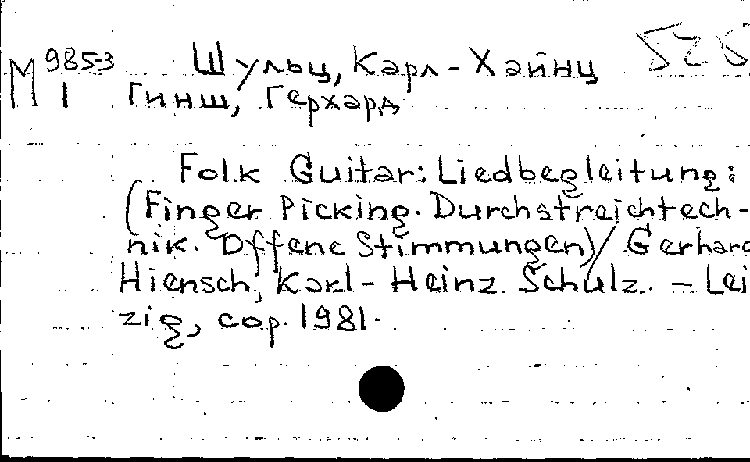 М 9853 Шульц, Карл-Хайнц 525
1 Гинш, Герхард
Folk Guitar: Liedbegleitung:
(Finger Picking. Durchstreichtech-
nik. Offene Stimmungen)/ Gerhard
Hiensch, Karl-Heinz Schulz. - Lei
zig, cop. 1981.